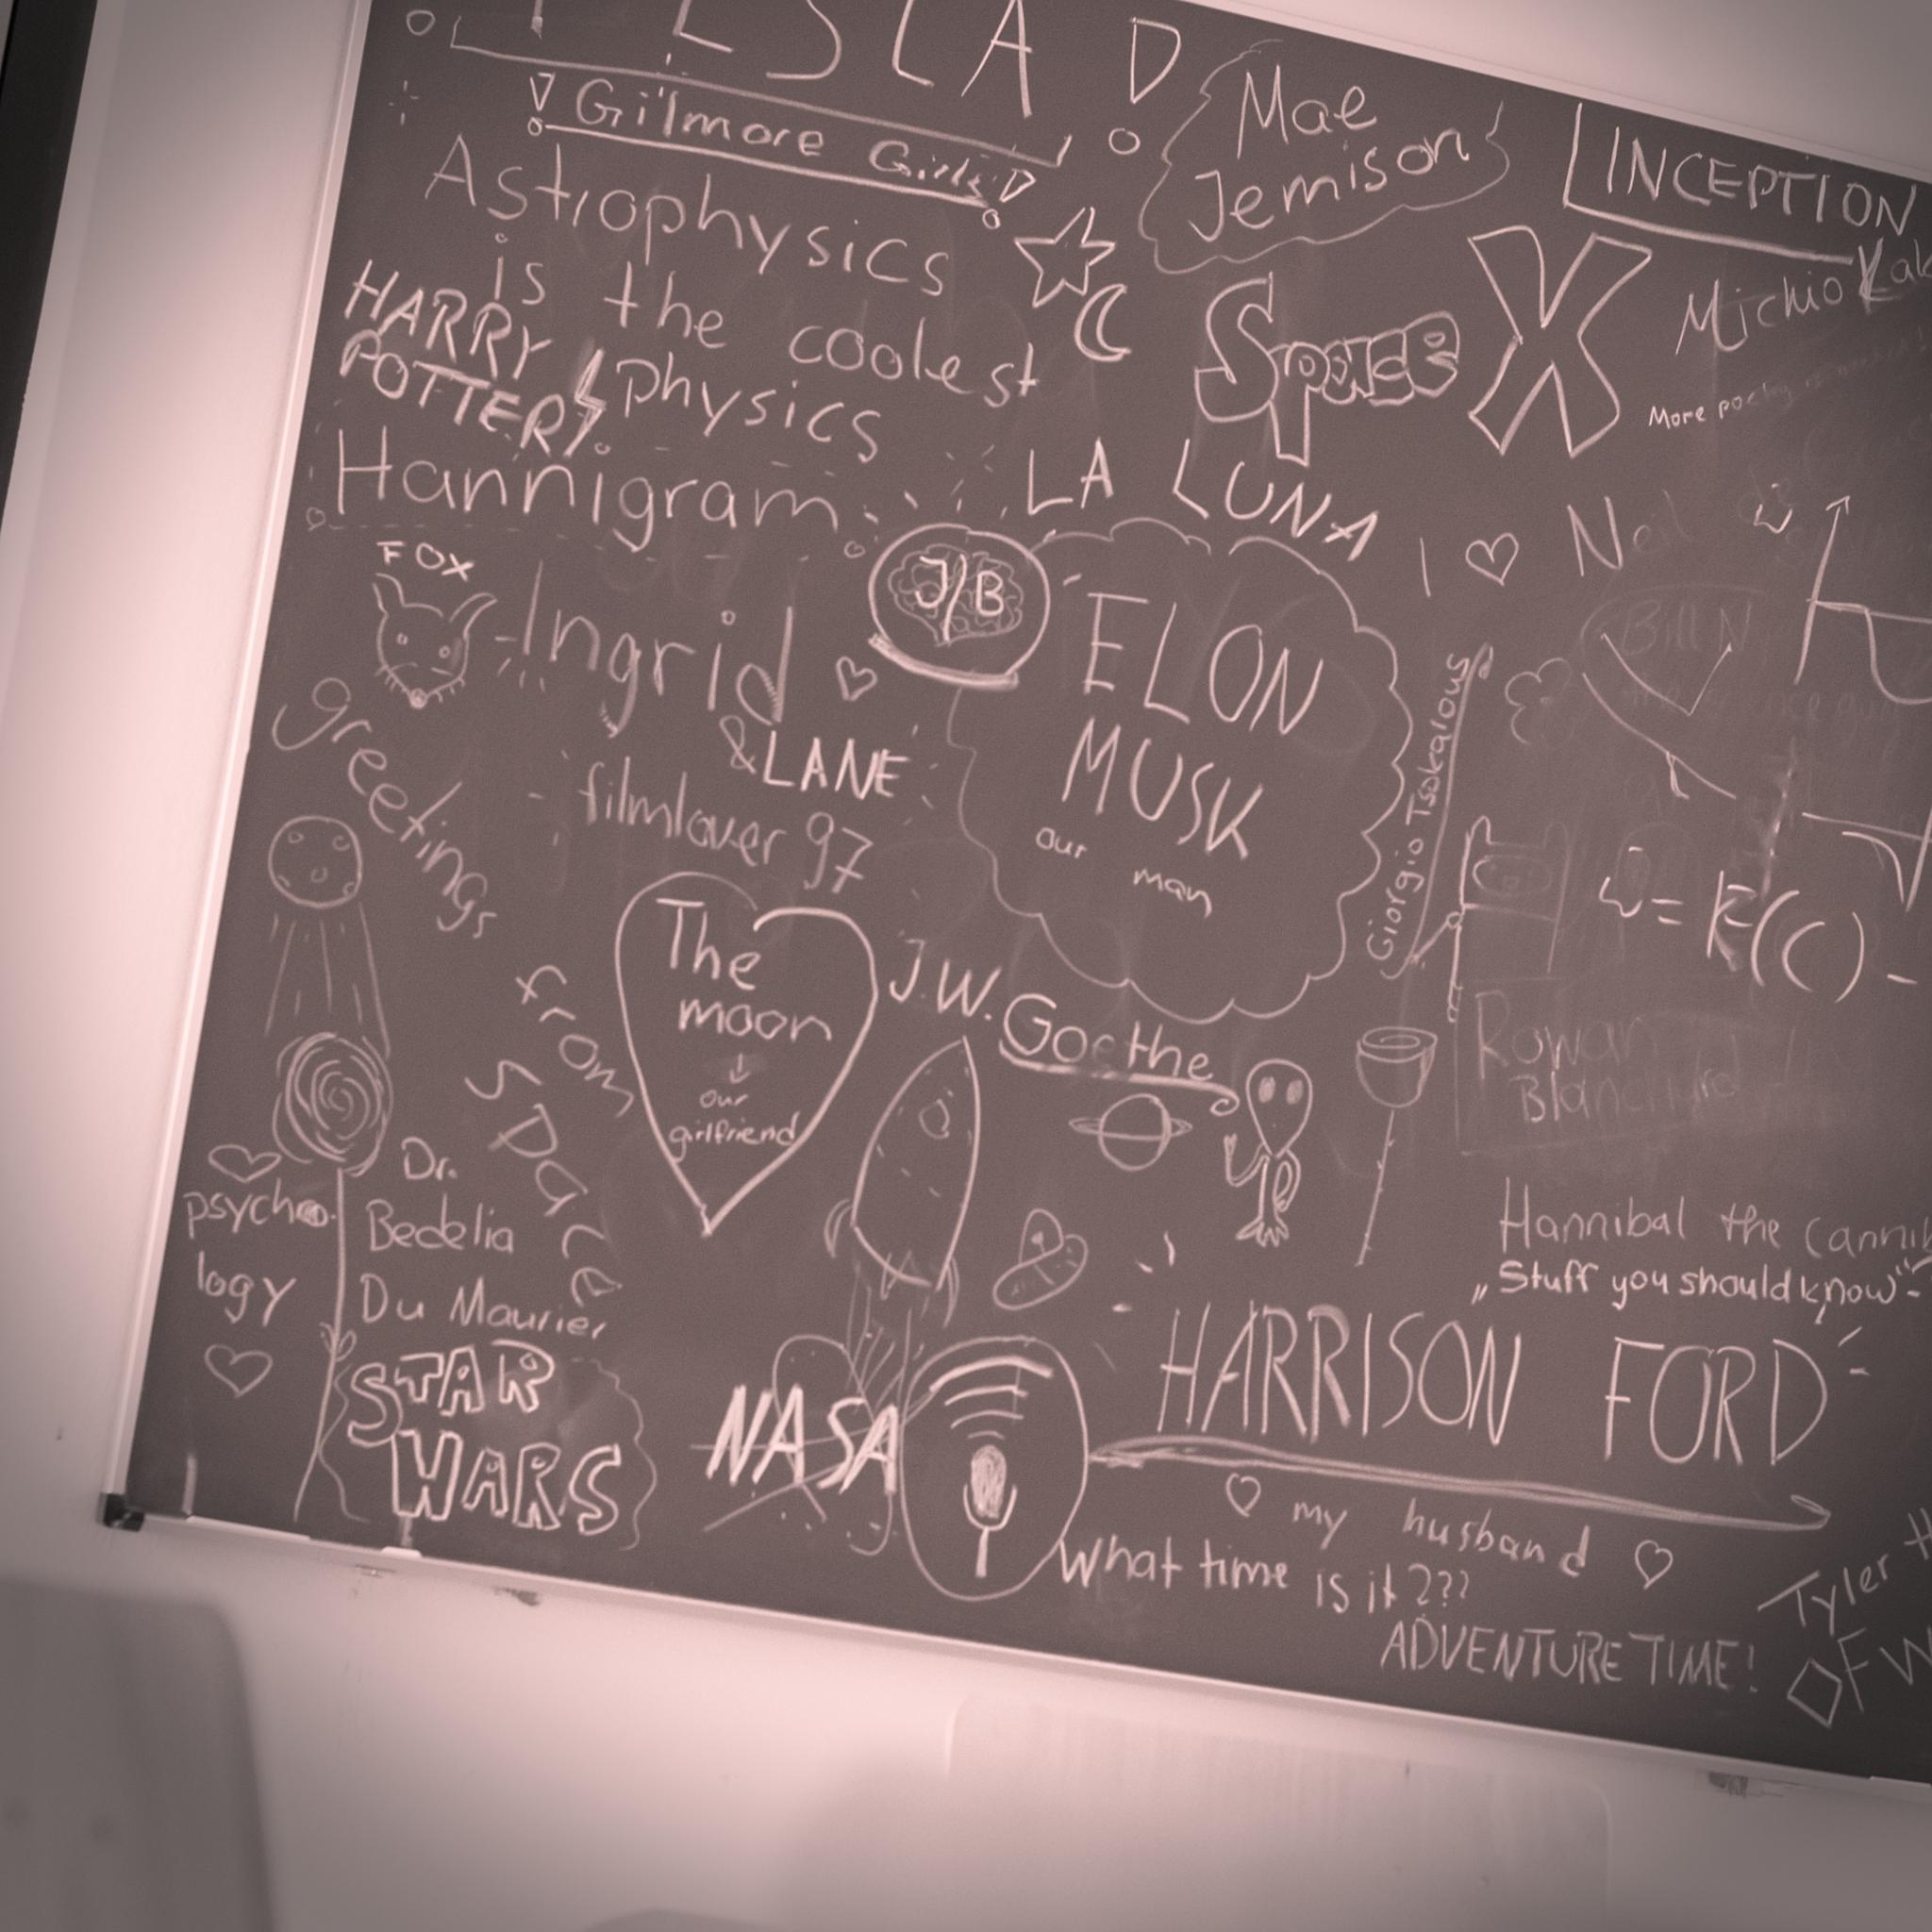 TESLA
Gilmore Girls
Mae
Jemison
INCEPTION
Astrophysics
is the coolest
physics
HARRY
POTTER
SpaceX
Michio
More
Hannigram
LA LUNA
I ♡ Neil
FOX
Ingrid
& LANE
J/B
ELON
MUSK
our man
Giorgio Tsokalous
Bill N
filmlover 97
Greetings
from
space
The
moon
↓
our
girlfriend
J.W. Goethe
= k(c) -
Rowan
Blanchard
psycho-
logy
Dr.
Bedelia
Du Maurier
Hannibal the Canni
„Stuff you should know“
STAR
WARS
NASA
HARRISON FORD
♡ my husband ♡
What time is it???
ADVENTURE TIME!
Tyler
OFW